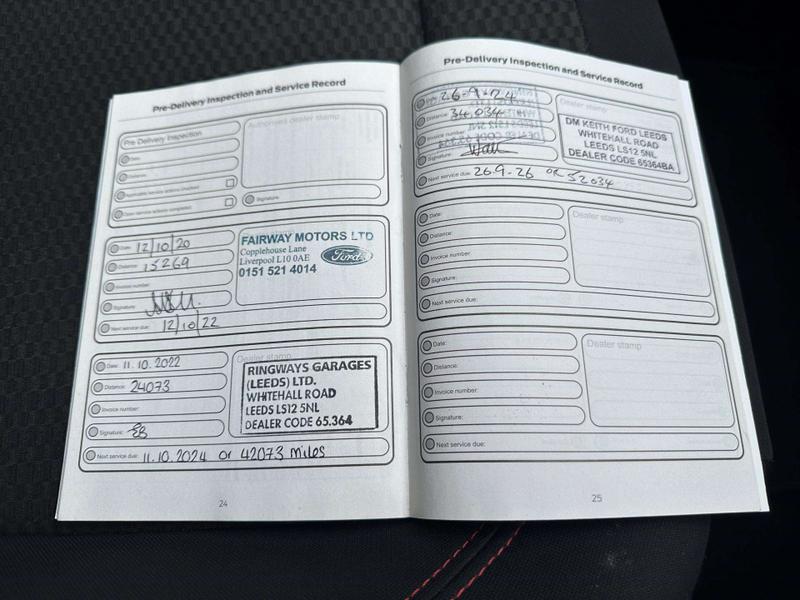 Pre-Delivery Inspection and Service Record
Pre Delivery Inspection
Authorised dealer stamp
Date:
Distance:
Applicable service actions checked
Open service actions completed
Signature:
Date: 12/10/20
Distance: 15269
Invoice number:
Signature:
Next service due: 12/10/22
FAIRWAY MOTORS LTD
Copplehouse Lane
Liverpool L10 0AE
0151 521 4014
Ford
Date: 11.10.2022
Distance: 24073
Invoice number:
Signature:
Next service due: 11.10.2024 or 42073 miles
Dealer stamp
RINGWAYS GARAGES
(LEEDS) LTD.
WHITEHALL ROAD
LEEDS LS12 5NL
DEALER CODE 65.364
24
Pre-Delivery Inspection and Service Record
Date: 26.9.24
Distance: 34,034
Invoice number:
Signature:
Next service due: 26.9.26 OR 52034
Dealer stamp
DM KEITH FORD LEEDS
WHITEHALL ROAD
LEEDS LS12 5NL
DEALER CODE 65364BA
Date:
Distance:
Invoice number:
Signature:
Next service due:
Dealer stamp
Date:
Distance:
Invoice number:
Signature:
Next service due:
Dealer stamp
25